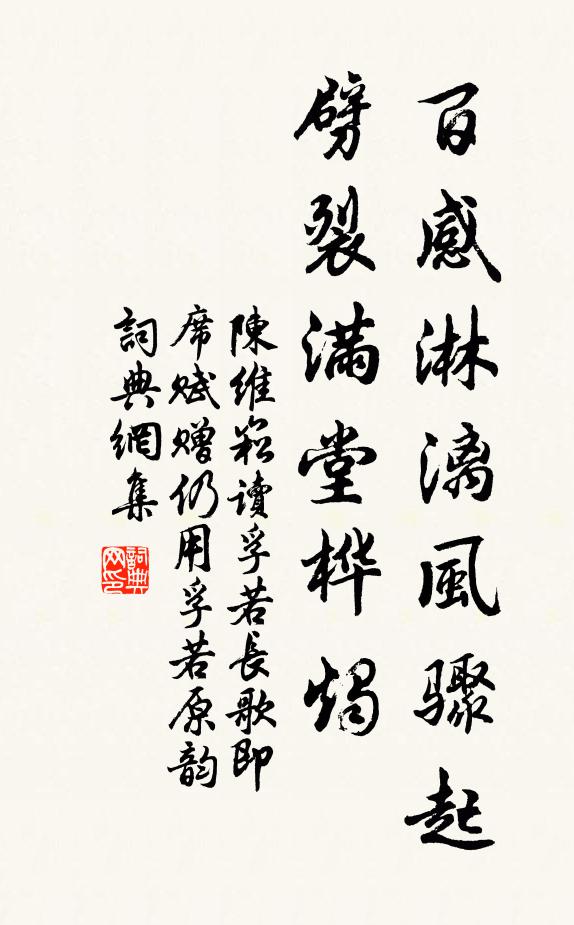 百感淋漓風驟起
劈裂滿堂桦燭
陳維崧讀孚若長歌即
席赋赠仍用孚若原韵
詞典網集
詞典网印